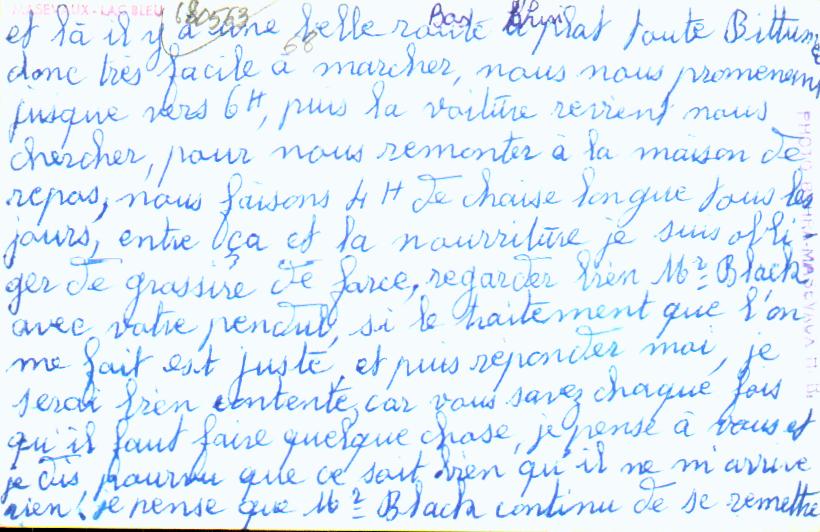 MASEVAUX - LAC BLEU
680563
68
Bas Rhin
et là il y a une belle route à plat toute Bittumé
donc très facile à marcher, nous nous promenent
jusque vers 6H, puis la voiture revient nous
chercher, pour nous remonter à la maison de
repos, nous faisons 4 H de chaise longue tous les
jours, entre ça et la nourriture je suis obli
ger de grassire de force, regarder bien Mr Black
avec votre pendul, si le traitement que l'on
me fait est juste, et puis reponder moi, je
serai bien contente, car vous savez chaque fois
qu'il faut faire quelque chose, je pense à vous et
je dis pourvu que ce soit bien qu'il ne m'arrive
rien! je pense que Mr Black continu de se remettre